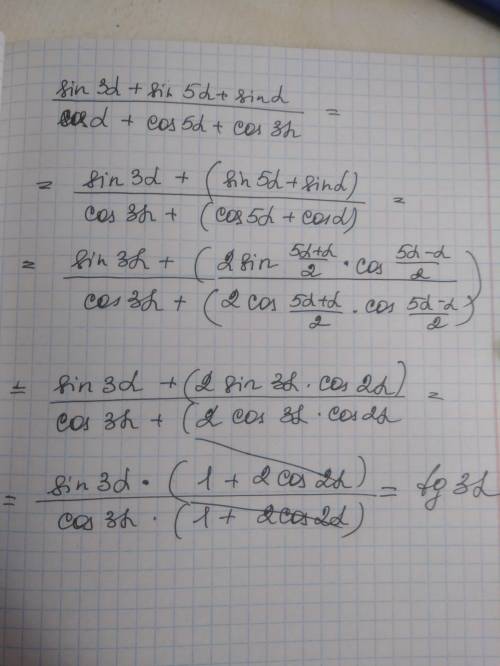 sin 3α + sin 5α + sin α
cos α + cos 5α + cos 3α =
= sin 3α + (sin 5α + sin α)
cos 3α + (cos 5α + cos α) =
= sin 3α + (2 sin (5α+α)/2 · cos (5α-α)/2)
cos 3α + (2 cos (5α+α)/2 · cos (5α-α)/2)
= sin 3α + (2 sin 3α · cos 2α)
cos 3α + (2 cos 3α · cos 2α =
= sin 3α · (1 + 2 cos 2α)
cos 3α · (1 + 2 cos 2α) = tg 3α